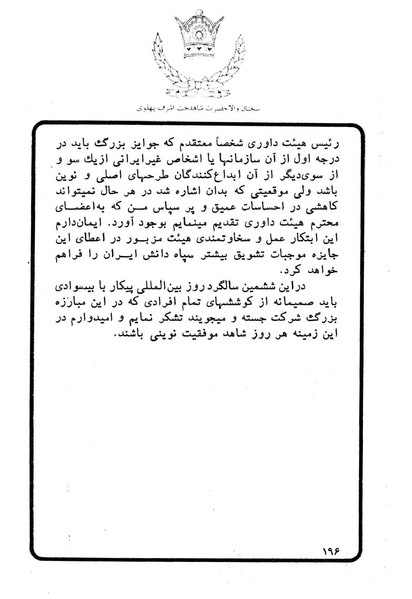 سخنان والاحضرت شاهدخت اشرف پهلوی
رئیس هیئت داوری شخصاً معتقدم که جوایز بزرگ باید در
درجه اول از آن سازمانها یا اشخاص غیرایرانی ازیک سو و
از سوی‌دیگر از آن ابداع‌کنندگان طرحهای اصلی و نوین
باشد ولی موقعیتی که بدان اشاره شد در هر حال نمیتواند
کاهشی در احساسات عمیق و پر سپاس من که به‌اعضای
محترم هیئت داوری تقدیم مینمایم بوجود آورد. ایمان‌دارم
این ابتکار عمل و سخاوتمندی هیئت مزبور در اعطای این
جایزه موجبات تشویق بیشتر سپاه دانش ایران را فراهم
خواهد کرد.
دراین ششمین سالگرد روز بین‌المللی پیکار با بیسوادی
باید صمیمانه از کوششهای تمام افرادی که در این مبارزه
بزرگ شرکت جسته و میجویند تشکر نمایم و امیدوارم در
این زمینه هر روز شاهد موفقیت نوینی باشند.
۱۹۶